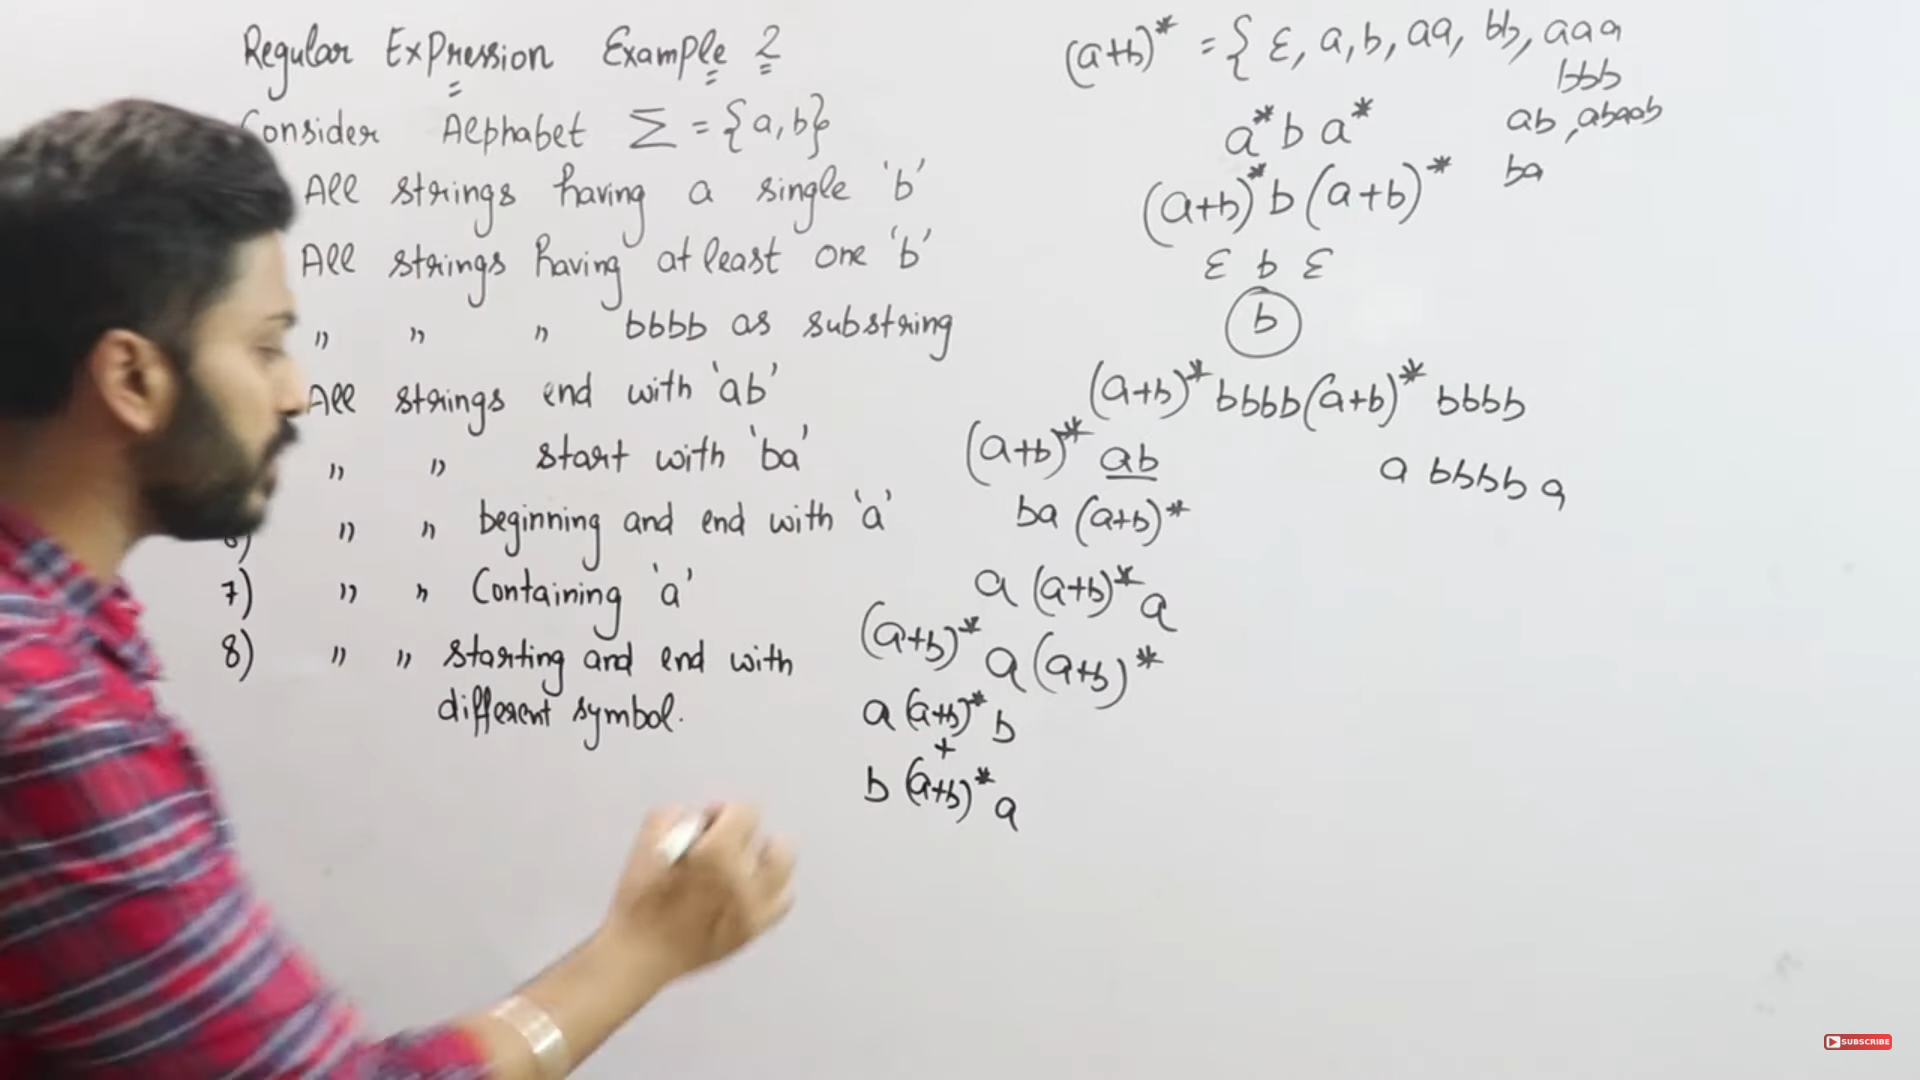 Regular Expression Example 2
Consider Alphabet Σ = {a, b}
All strings having a single 'b'
All strings having at least one 'b'
" " " bbbb as substring
All strings end with 'ab'
" " start with 'ba'
6) " " beginning and end with 'a'
7) " " Containing 'a'
8) " " starting and end with
different symbol.
(a+b)* = { ε, a, b, aa, bb, aaa
bbb
ab, abaab
ba
a* b a*
(a+b)* b (a+b)*
ε b ε
b
(a+b)* bbbb (a+b)* bbbb
a bbbb a
(a+b)* ab
ba (a+b)*
a (a+b)* a
(a+b)* a (a+b)*
a (a+b)* b
+
b (a+b)* a
SUBSCRIBE